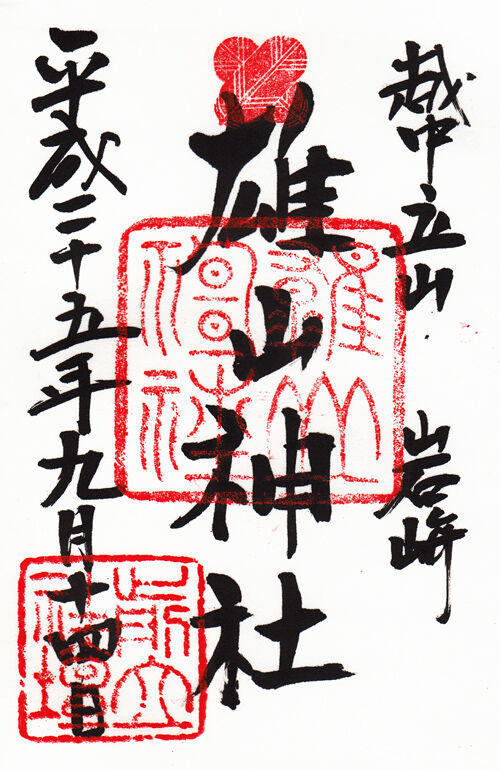 越中立山 岩峅
雄山神社
平成二十五年九月十四日
雄山神社
前立社壇